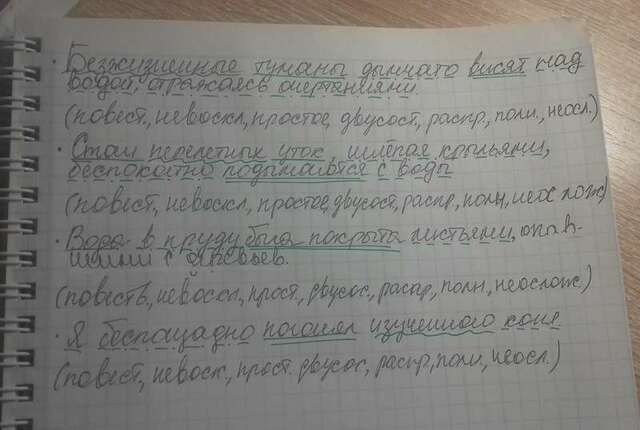 · Безжизненные туманы дымчато висят над
водой, отражаясь очертаниями.
(повест., невоскл., простое, двусост., распр., полн., неосл.)
· Стаи перелетных уток, шлёпая крыльями,
беспокойно подымаются с воды
(повест, невоскл., простое, двусост, распр, полн, неос лож)
· Вода в пруду была покрыта листьями, опав-
шими с деревьев.
(повеств, невоскл, прост., двусос., распр, полн., неослож)
· Я беспощадно погонял измученного коня.
(повест, невоскл, прост. двусос., распр, полн, неосл.)